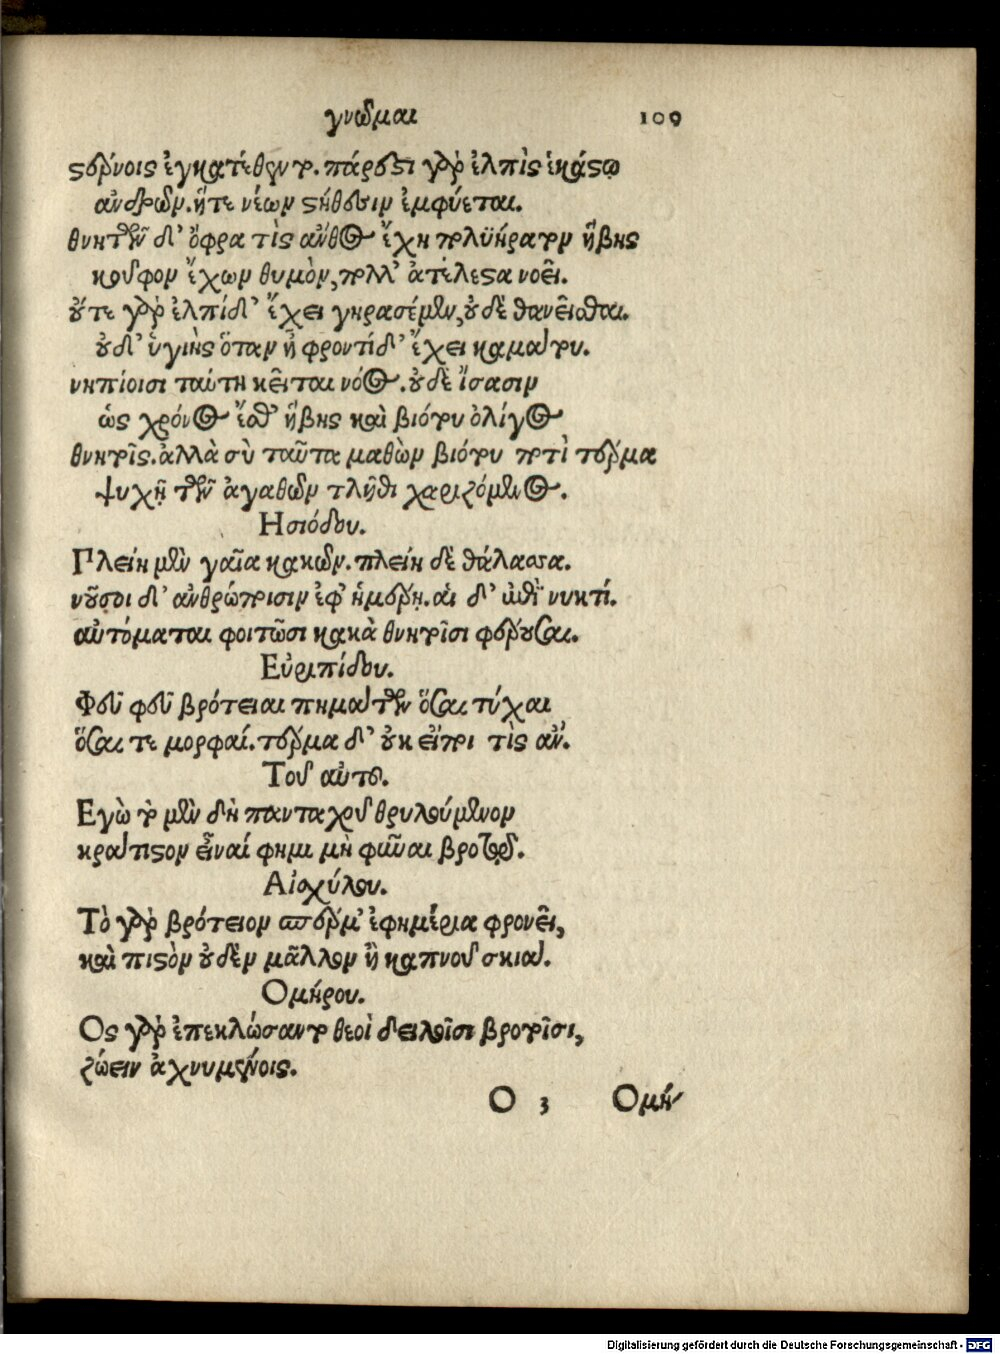 γνῶμαι 109
στέρνοις ἐγκατέθεντο. πάρεστι γὰρ ἐλπὶς ἑκάστῳ
ἀνδρῶν. ἥτε νέων στήθεσιν ἐμφύεται.
θνητῶν δ' ὄφρα τὶς ἄνθος ἔχη πολυήρατον ἥβης
κοῦφον ἔχων θυμὸν, πολλ' ἀτέλεστα νοεῖ.
οὔτε γὰρ ἐλπίδ' ἔχει γηρασέμεν, οὐδὲ θανεῖσθαι.
οὐδ' ὑγιὴς ὅταν ἦ φροντίδ' ἔχει καμάτου.
νηπίοισι ταύτη κεῖται νόος. οὐδὲ ἴσασιν
ὡς χρόνος ἔσθ' ἥβης καὶ βιότου ὀλίγος
θνητοῖς. ἀλλὰ σὺ ταῦτα μαθὼν βιότου ποτὶ τέρμα
ψυχῇ τῶν ἀγαθῶν τλῆθι χαριζόμενος.
Ησιόδου.
Πλείη μὲν γαῖα κακῶν. πλείη δὲ θάλασσα.
νοῦσοι δ' ἀνθρώποισιν ἐφ' ἡμέρῃ. αἱ δ' ἐπὶ νυκτί.
αὐτόματοι φοιτῶσι κακὰ θνητοῖσι φέρουσαι.
Εὐριπίδου.
Φεῦ φεῦ βρότειαι πημάτων ὅσαι τύχαι
ὅσαι τε μορφαί. τέρμα δ' οὐκ εἴποι τὶς ἄν.
Τοῦ αὐτοῦ.
Εγὼ τὸ μὲν δὴ πανταχοῦ θρυλούμενον
κράτιστον εἶναί φημι μὴ φῦναι βροτῷ.
Αἰσχύλου.
Τὸ γὰρ βρότειον σπέρμ' ἐφημέρια φρονεῖ,
καὶ πιστὸν οὐδὲν μᾶλλον ἢ καπνοῦ σκιά.
Ομήρου.
Ος γὰρ ἐπεκλώσαντο θεοὶ δειλοῖσι βροτοῖσι,
ζώειν ἀχνυμένοις.
O 3 Ομή
Digitalisierung gefördert durch die Deutsche Forschungsgemeinschaft - DFG